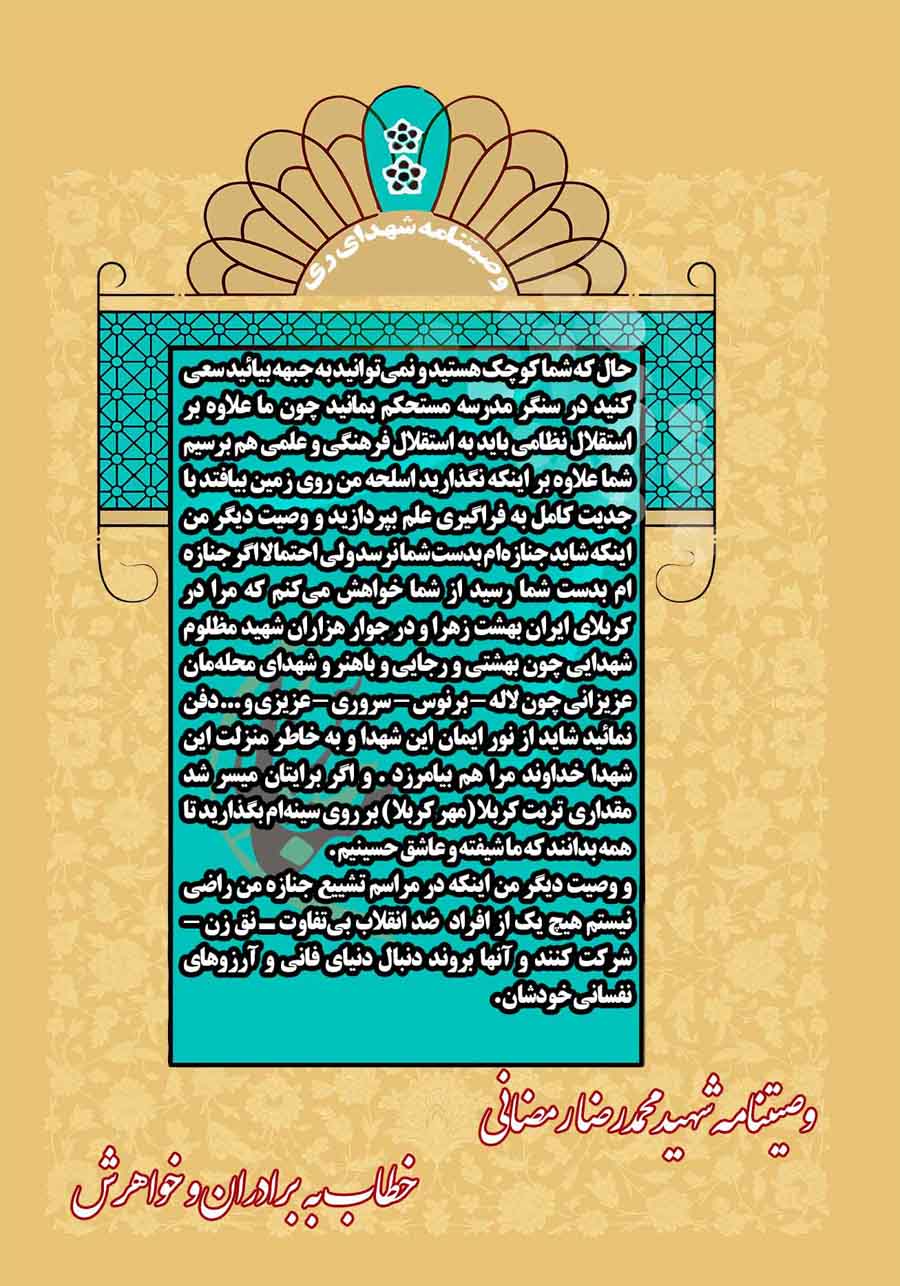 وصیتنامه شهدای ری
حال که شما کوچک هستید و نمی‌توانید به جبهه بیائید سعی
کنید در سنگر مدرسه مستحکم بمانید چون ما علاوه بر
استقلال نظامی باید به استقلال فرهنگی و علمی هم برسیم
شما علاوه بر اینکه نگذارید اسلحه من روی زمین بیافتد با
جدیت کامل به فراگیری علم بپردازید و وصیت دیگر من
اینکه شاید جنازه‌ام بدست شما نرسد ولی احتمالا اگر جنازه
ام بدست شما رسید از شما خواهش می‌کنم که مرا در
کربلای ایران بهشت زهرا و در جوار هزاران شهید مظلوم
شهدایی چون بهشتی و رجایی و باهنر و شهدای محله‌مان
عزیزانی چون لاله - برنوس - سروری - عزیزی و... دفن
نمائید شاید از نور ایمان این شهدا و به خاطر منزلت این
شهدا خداوند مرا هم بیامرزد . و اگر برایتان میسر شد
مقداری تربت کربلا (مهر کربلا) بر روی سینه‌ام بگذارید تا
همه بدانند که ما شیفته و عاشق حسینیم.
و وصیت دیگر من اینکه در مراسم تشییع جنازه من راضی
نیستم هیچ یک از افراد ضد انقلاب بی‌تفاوت ـ نق زن -
شرکت کنند و آنها بروند دنبال دنیای فانی و آرزوهای
نفسانی خودشان.
وصیتنامه شهید محمدرضا رمضانی
خطاب به برادران و خواهرش